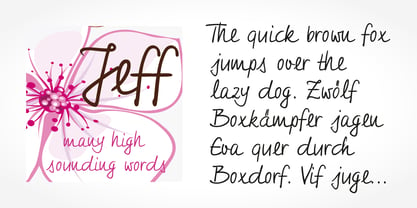 Jeff
many high
sounding words
The quick brown fox
jumps over the
lazy dog. Zwölf
Boxkämpfer jagen
Eva quer durch
Boxdorf. Vif juge...